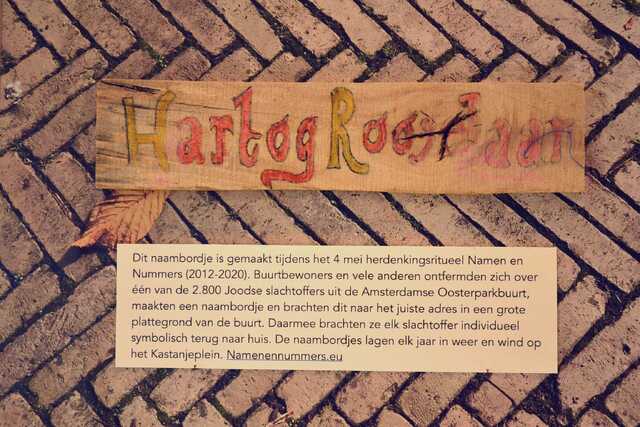 Hartog Roosdaan
Dit naambordje is gemaakt tijdens het 4 mei herdenkingsritueel Namen en
Nummers (2012-2020). Buurtbewoners en vele anderen ontfermden zich over
één van de 2.800 Joodse slachtoffers uit de Amsterdamse Oosterparkbuurt,
maakten een naambordje en brachten dit naar het juiste adres in een grote
plattegrond van de buurt. Daarmee brachten ze elk slachtoffer individueel
symbolisch terug naar huis. De naambordjes lagen elk jaar in weer en wind op
het Kastanjeplein. Namenennummers.eu